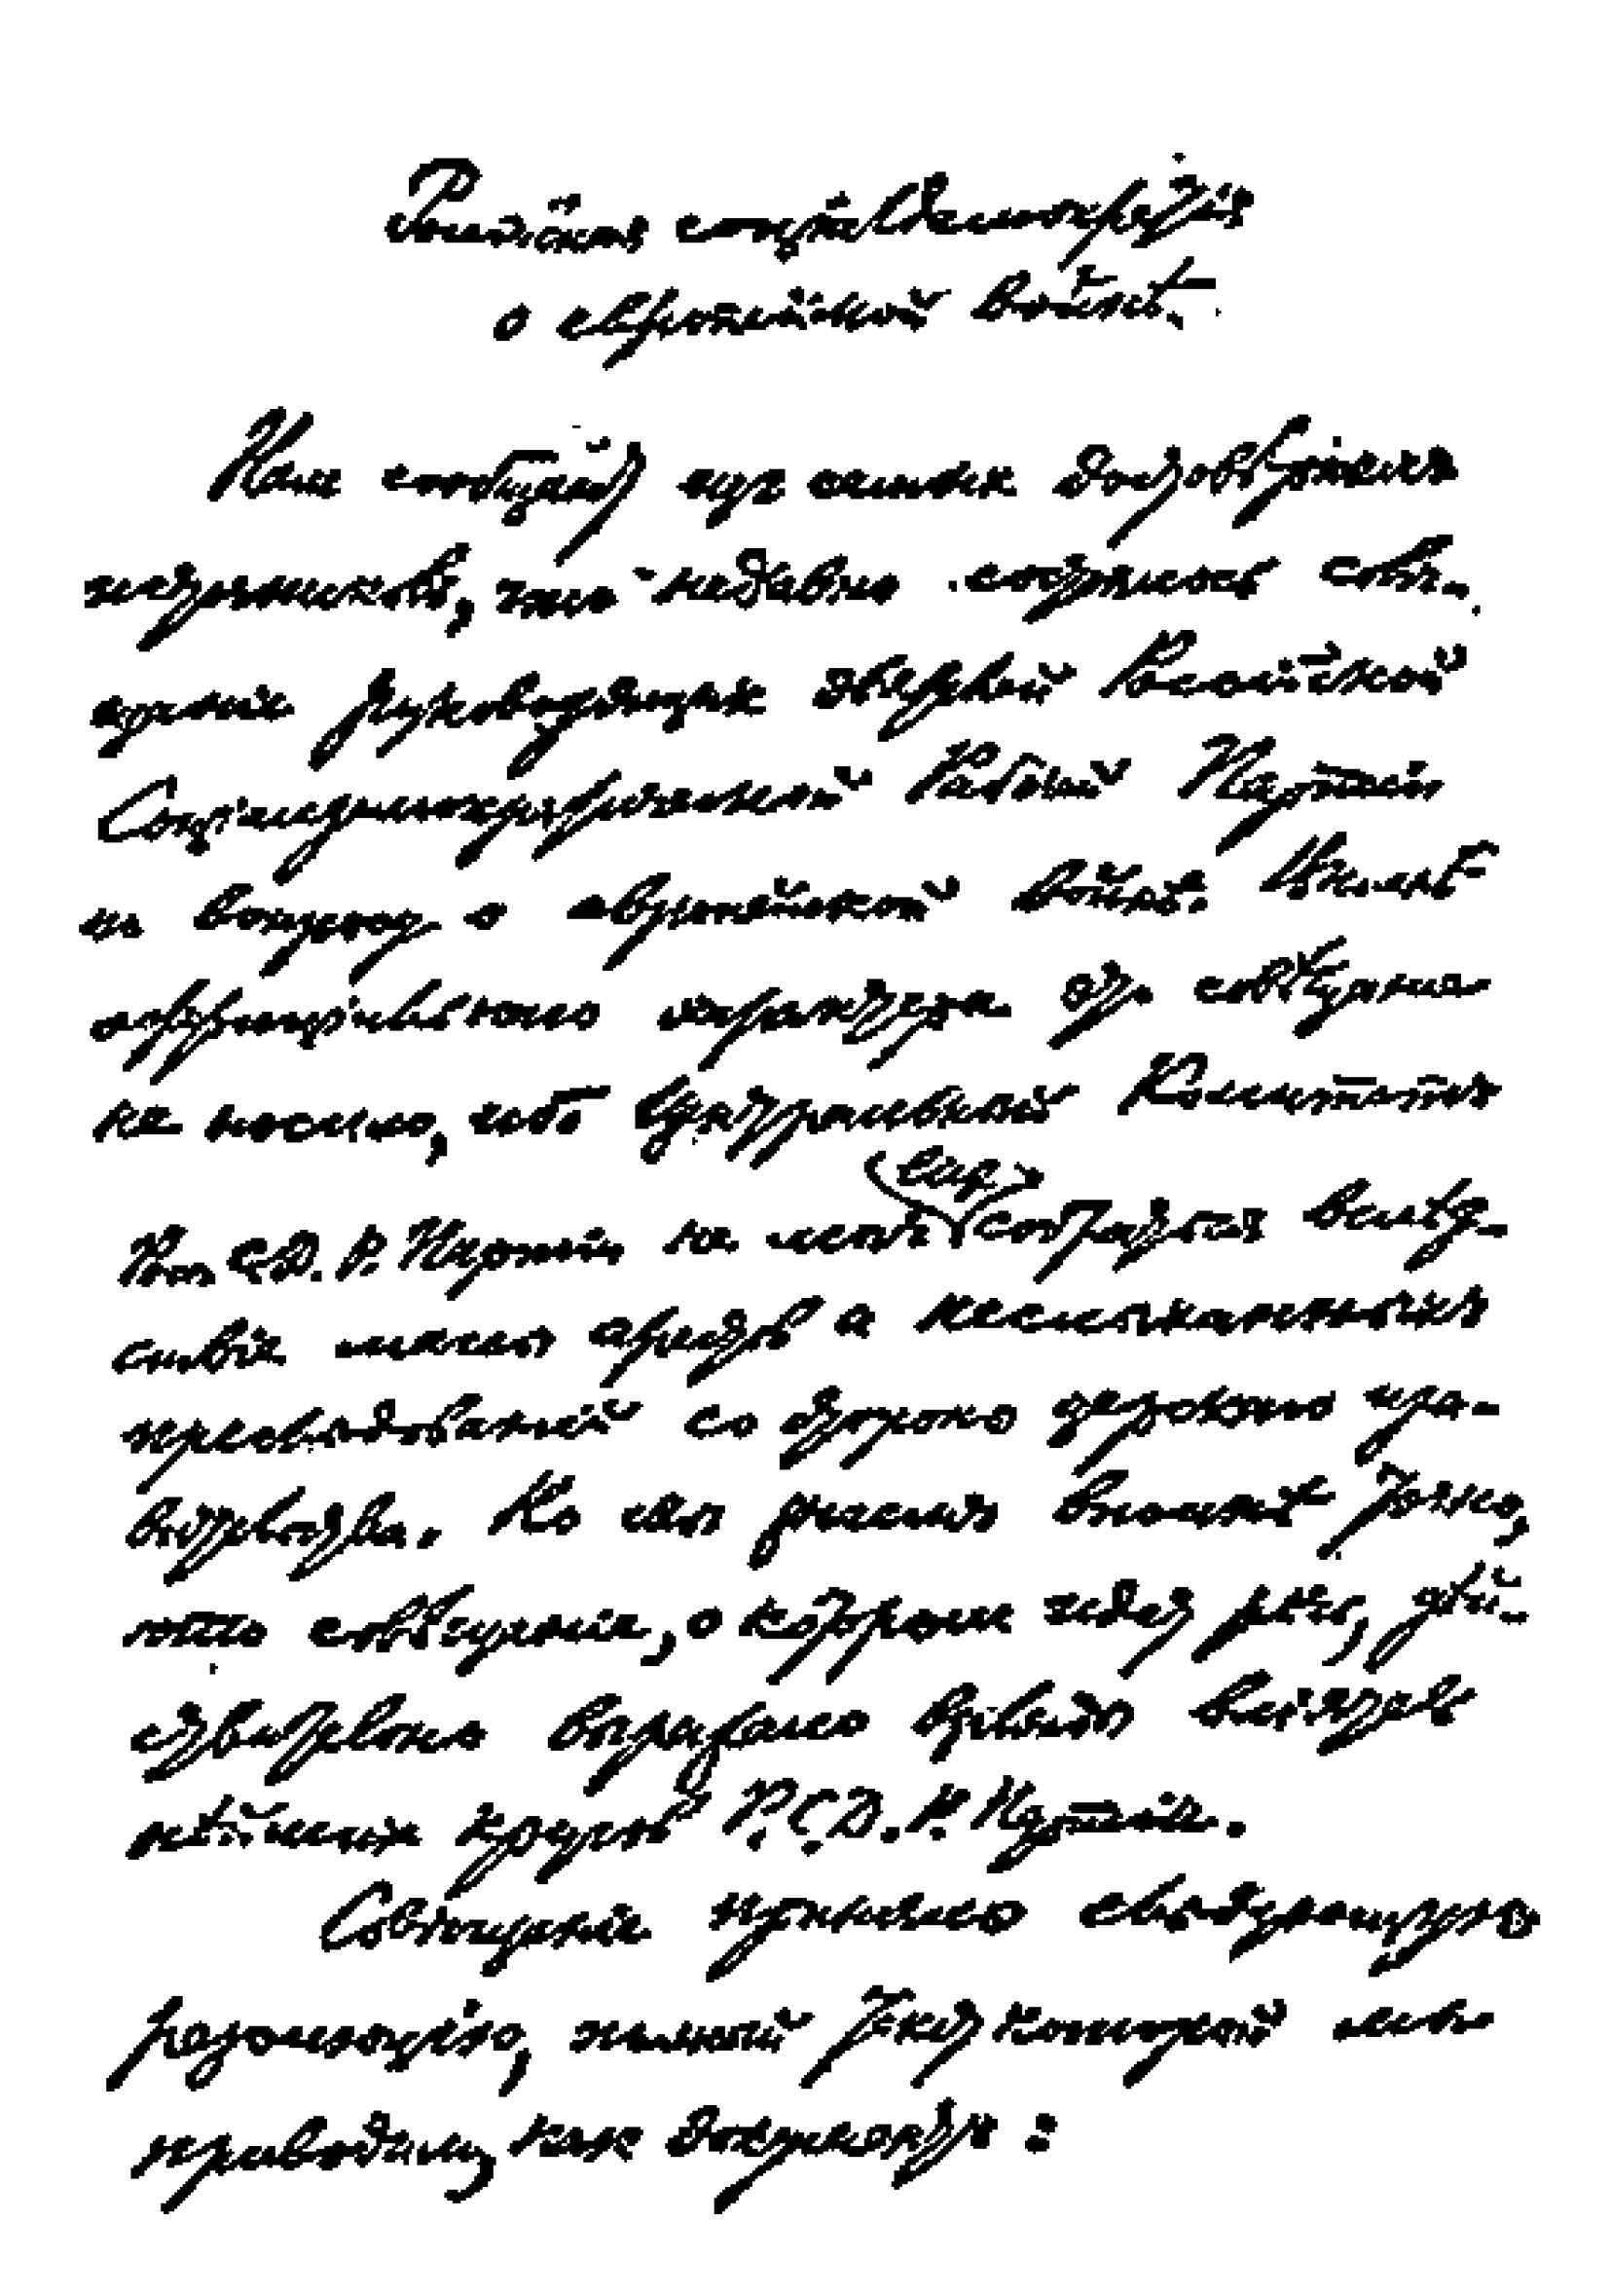 Российская социальдемократия
о европейской войнѣ.
Нам сообщают из самых достовѣрных
источников, что недавно состоялось совѣ-
щаніе руководящих дѣятелей Россійской
Соціалдемократической Рабочей Партіи
по вопросу о европейской войнѣ. Вполнѣ
оффиціального характера это совѣщание
не носило, ибо Центральный Комитет
Рос. С.Д.Р. Партіи не мог (еще) собраться вслѣд-
ствіе массы арестов и неслыханных
преслѣдований со стороны царского пра-
вительства. Но нам вполнѣ точно,
что совѣщаніе, о котором идет рѣчь, дѣй-
ствительно выражало взгляды вліятель-
нѣйших кругов Р.С.Д.Р. Партіи.
Совѣщаніе приняло слѣдующую
резолюцію, полный текст которой мы
приводим, как документ: